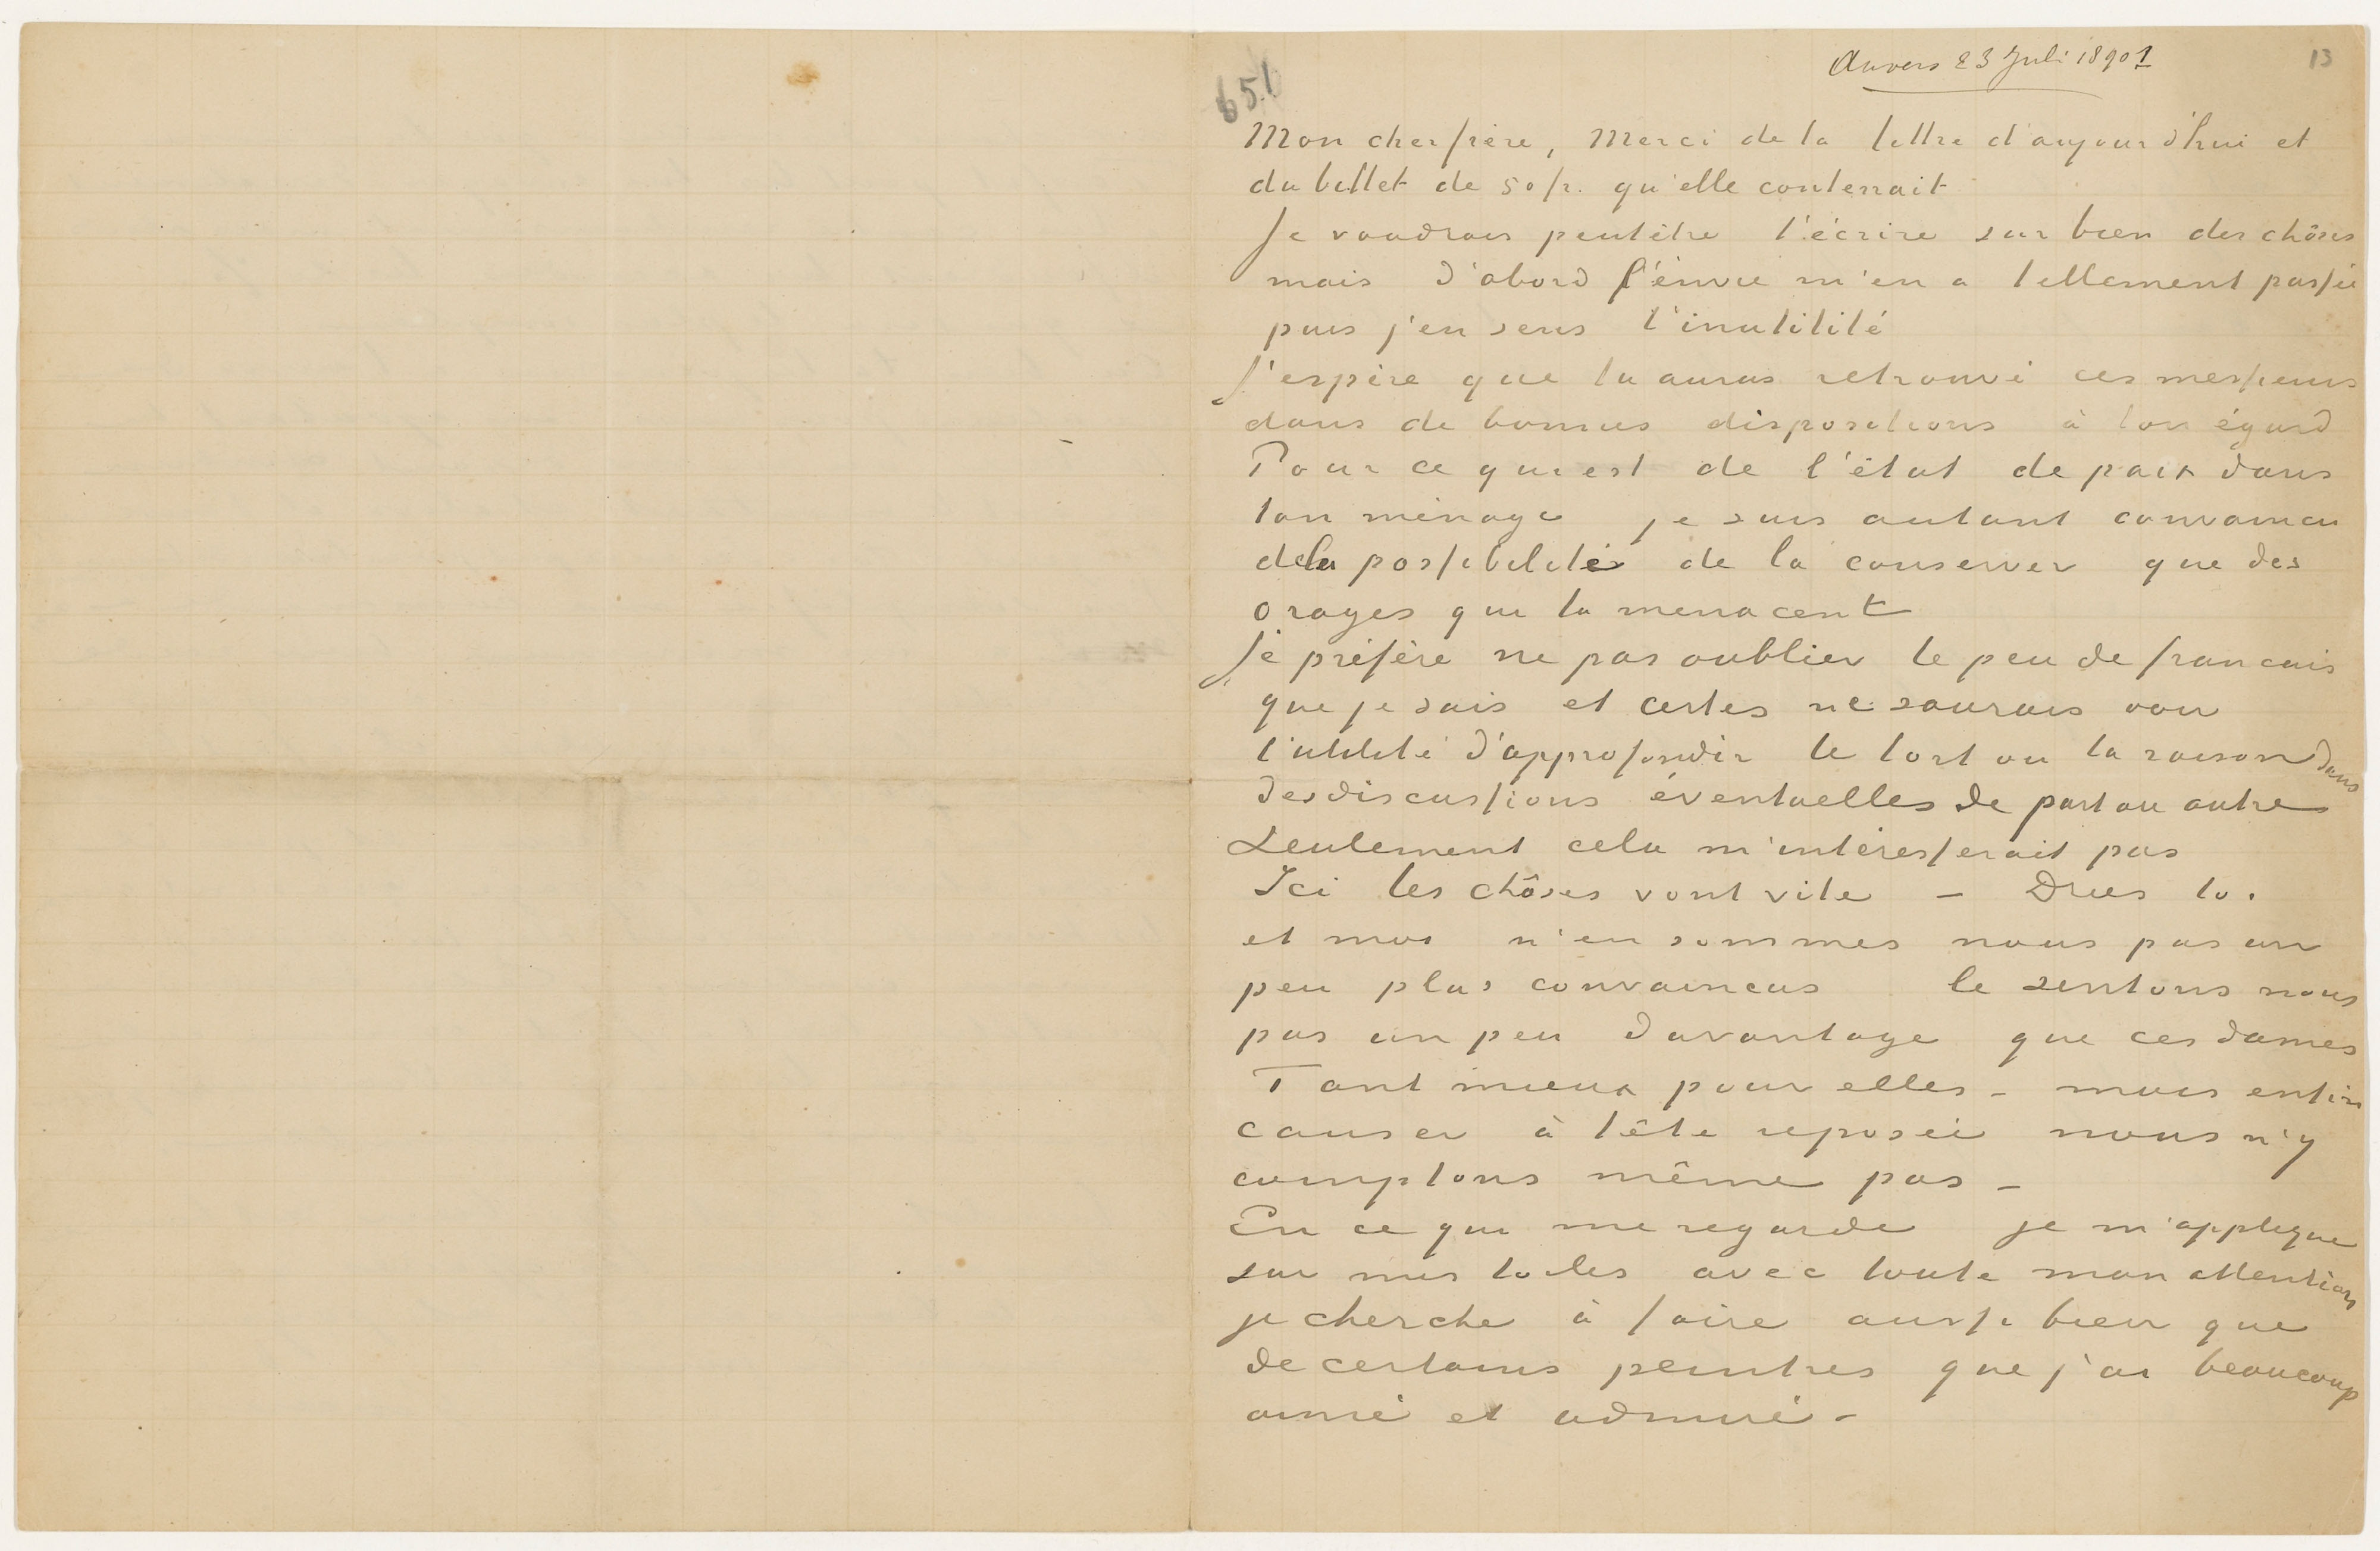 Auvers 23 Juli 1890 1
13
651
Mon cher frère, Merci de ta lettre d'aujourd'hui et
du billet de 50 fr. qu'elle contenait
Je voudrais peutêtre t'écrire sur bien des chôses
mais d'abord l'envie m'en a tellement passée
puis j'en sens l'inutilité
J'espère que tu auras retrouvé ces messieurs
dans de bonnes dispositions à ton égard
Pour ce qui est de l'état de paix dans
ton ménage je suis autant convaincu
de la possibilité de la conserver que des
orages qui la menacent
Je préfère ne pas oublier le peu de francais
que je sais et certes ne saurais voir
l'utilité d'approfondir le tort ou la raison dans
des discussions éventuelles de part ou autre
Seulement cela m'intéresserait pas
Ici les chôses vont vite – Dries toi
et moi n'en sommes nous pas un
peu plus convaincus le sentons nous
pas un peu davantage que ces dames
Tant mieux pour elles – mais enfin
causer à tête reposée nous n'y
comptons même pas –
En ce qui me regarde je m'applique
sur mes toiles avec toute mon attention
je cherche à faire aussi bien que
de certains peintres que j'ai beaucoup
aimé et admiré –